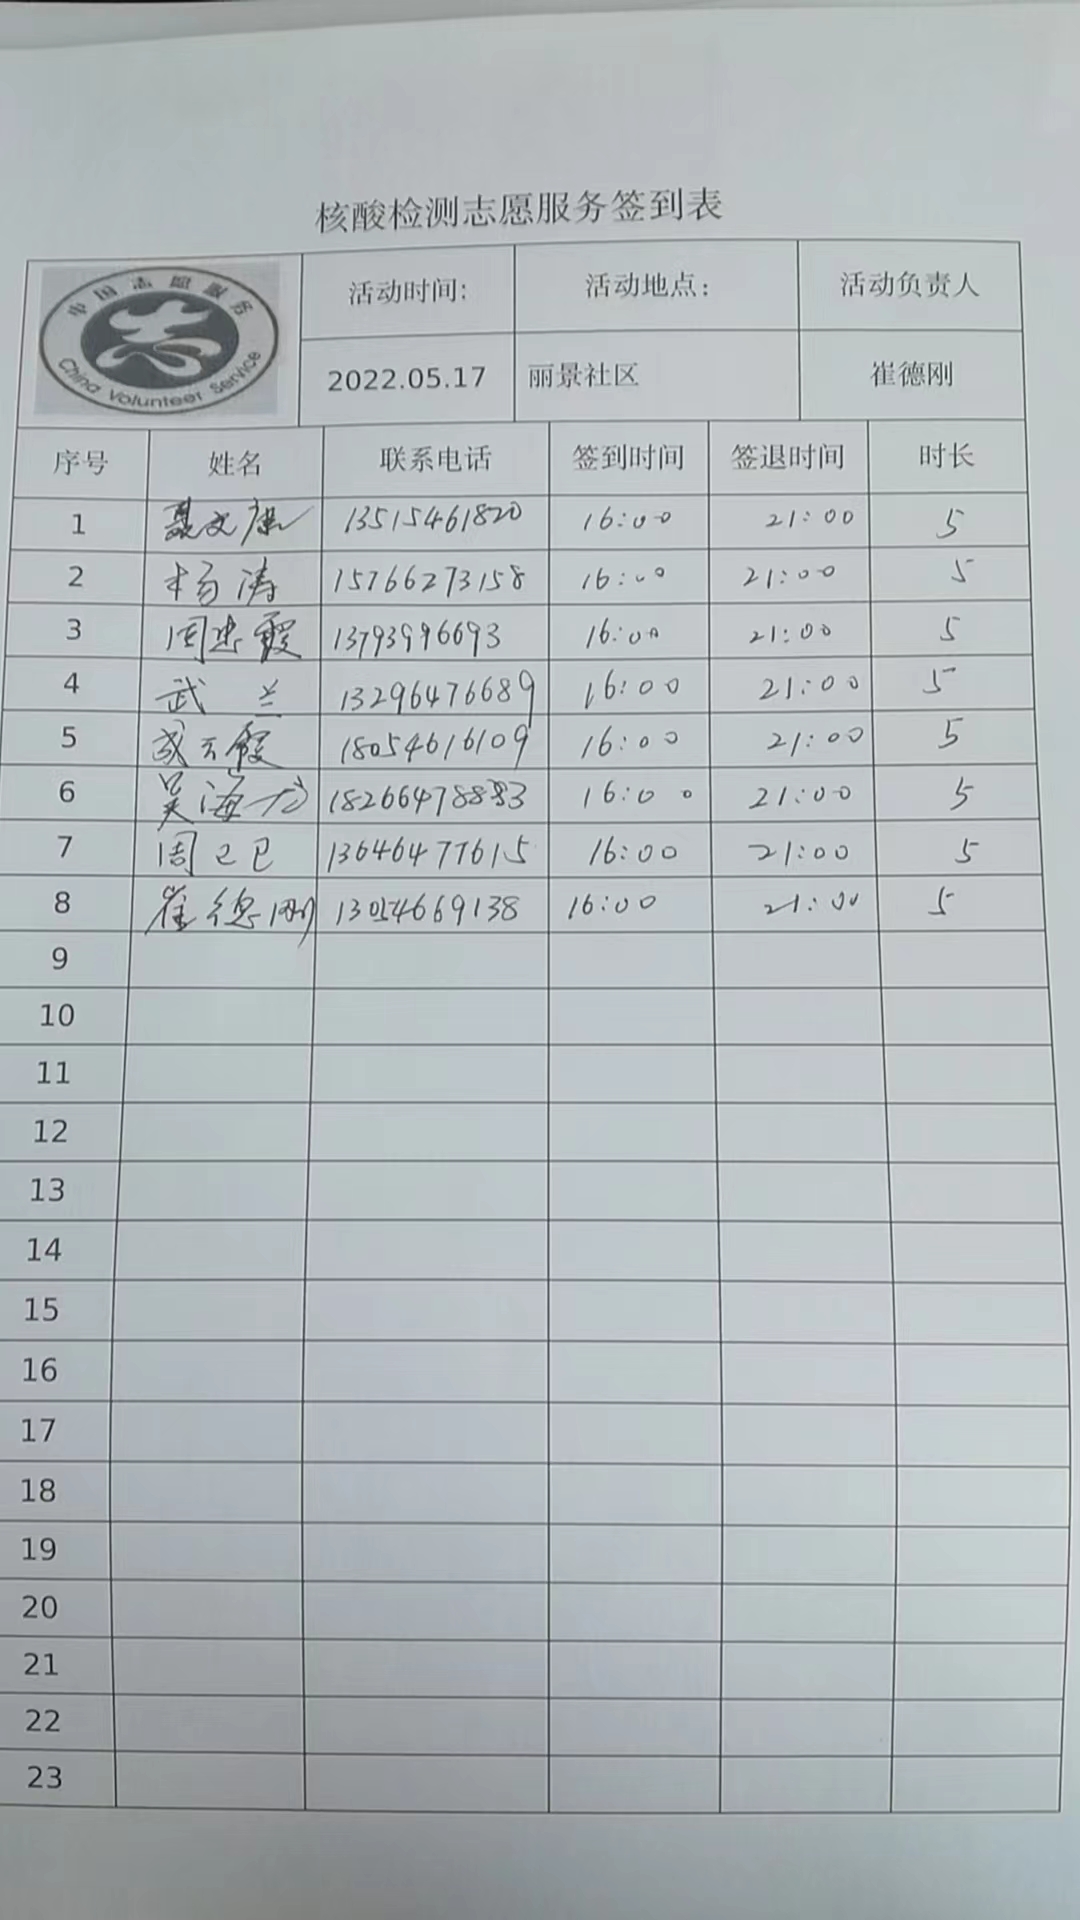 核酸检测志愿服务签到表
中国志愿服务
China Volunteer Service
活动时间: 活动地点: 活动负责人
2022.05.17 丽景社区 崔德刚
序号 姓名 联系电话 签到时间 签退时间 时长
1 聂文 13515461820 16:00 21:00 5
2 杨涛 15766273158 16:00 21:00 5
3 周忠霞 13793996693 16:00 21:00 5
4 武兰 13296476689 16:00 21:00 5
5 成云霞 18054616109 16:00 21:00 5
6 吴海龙 16:00 21:00 5
7 周已巳 13646477615 16:00 21:00 5
8 崔德刚 13054669138 16:00 21:00 5
9
10
11
12
13
14
15
16
17
18
19
20
21
22
23